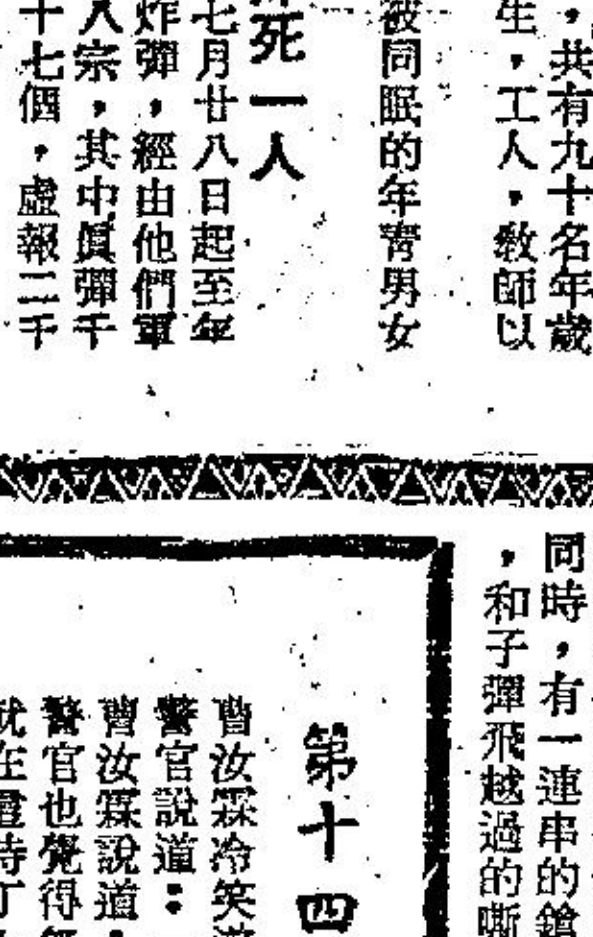 ，共有九十名年歲
生，工人，敎師以
被同眠的年靑男女
死一人
七月廿八日起至年
炸彈，經由他們軍
人宗，其中眞彈千
十七個，虛報二千
同時，有一連串的鎗
，和子彈飛越過的嘶
第十四
曹汝霖冷笑道
警官說道：
曹汝霖說道：
警官也覺得
就在這時